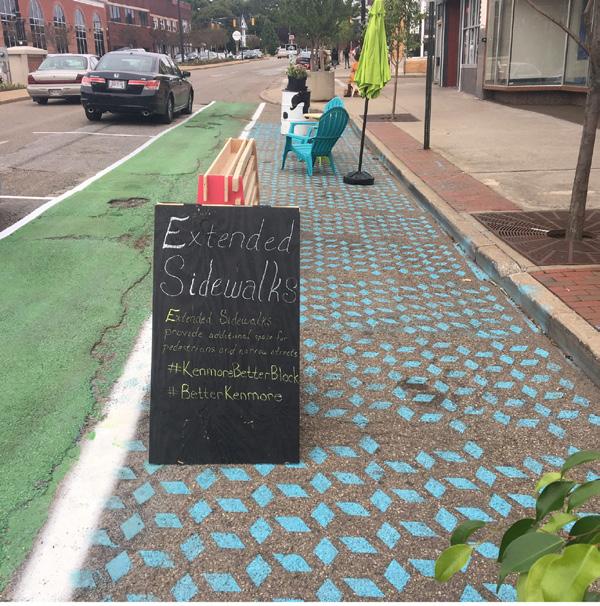 Extended
Sidewalks
Extended Sidewalks
provide additional space for
pedestrians and narrow streets
#KenmoreBetterBlock
#BetterKenmore